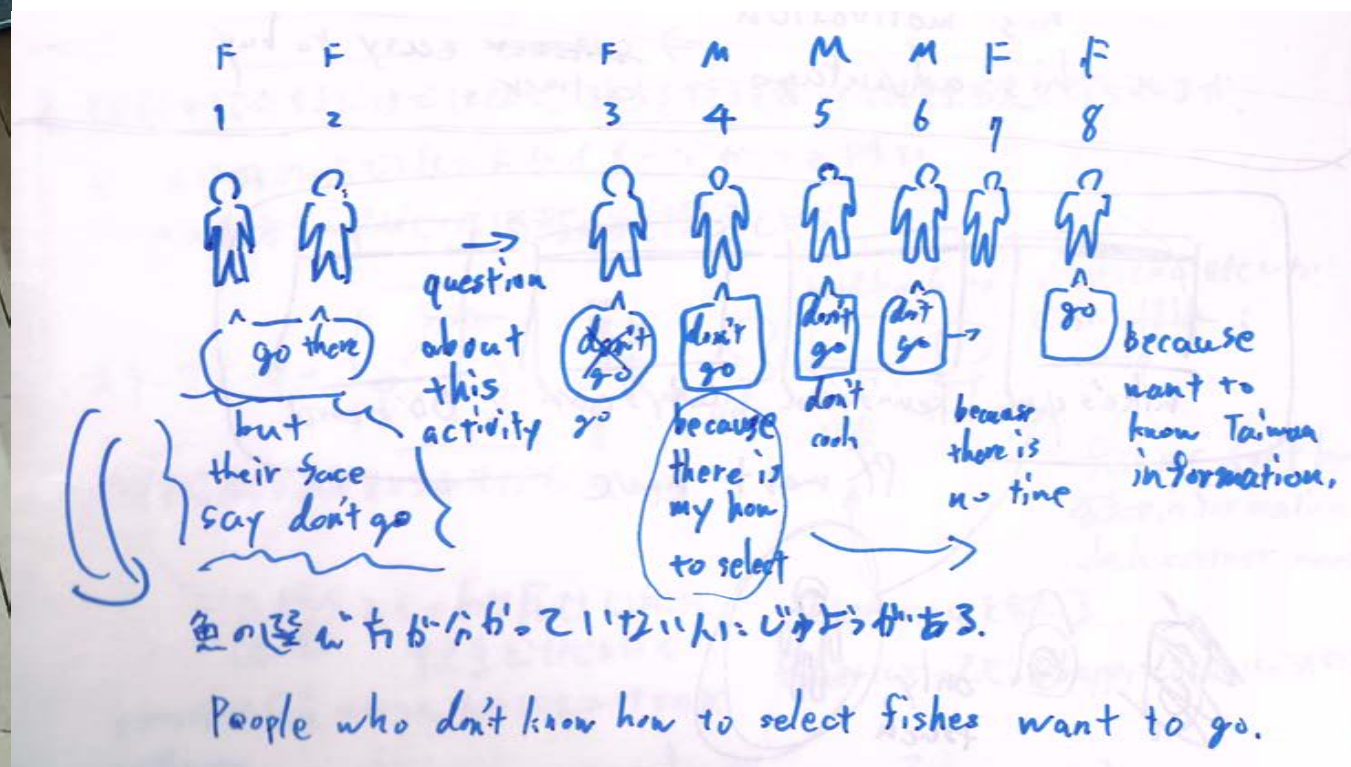 F F F M M M F F
1 2 3 4 5 6 7 8
go there
but
their face
say don't go
question
about
this
activity
don't
go
go
don't
go
because
there is
my how
to select
don't
go
don't
cook
don't
go
because
there is
no time
go
because
want to
know Taiwan
information.
魚の選び方が分かっていない人にじゅようがある.
People who don't know how to select fishes want to go.